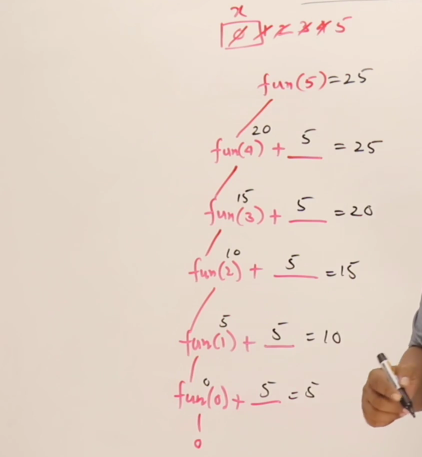 x
0 1 2 3 4 5
fun(5) = 25
20
fun(4) + 5 = 25
15
fun(3) + 5 = 20
10
fun(2) + 5 = 15
5
fun(1) + 5 = 10
0
fun(0) + 5 = 5
0